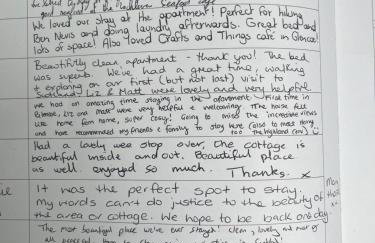 We loved our stay at the apartment! Perfect for hiking
Ben Nevis and doing laundry afterwards. Great bed and
lots of space! Also loved Crafts and Things café in Glencoe!
Beautifully clean apartment - thank you! The bed
was superb. We've had a great time, walking
+ exploring on our first (but not last) visit to
Scotland. Liz & Matt were lovely and very helpful
we had an amazing time staying in the apartment. First time in
Liz and Matt were very helpful & welcoming. The house felt
like home from home, super cosy! Going to miss the incredible views
and have recommended my friends & family to stay here (also to meet
too the highland cow)
Had a lovely wee stop over, the cottage is
beautiful inside and out. Beautiful place
as well. enjoyed so much. Thanks. x
It was the perfect spot to stay.
My words can't do justice to the beauty of
the area or cottage. We hope to be back one day.
The most beautiful place we've ever stayed! Clean, lovely and